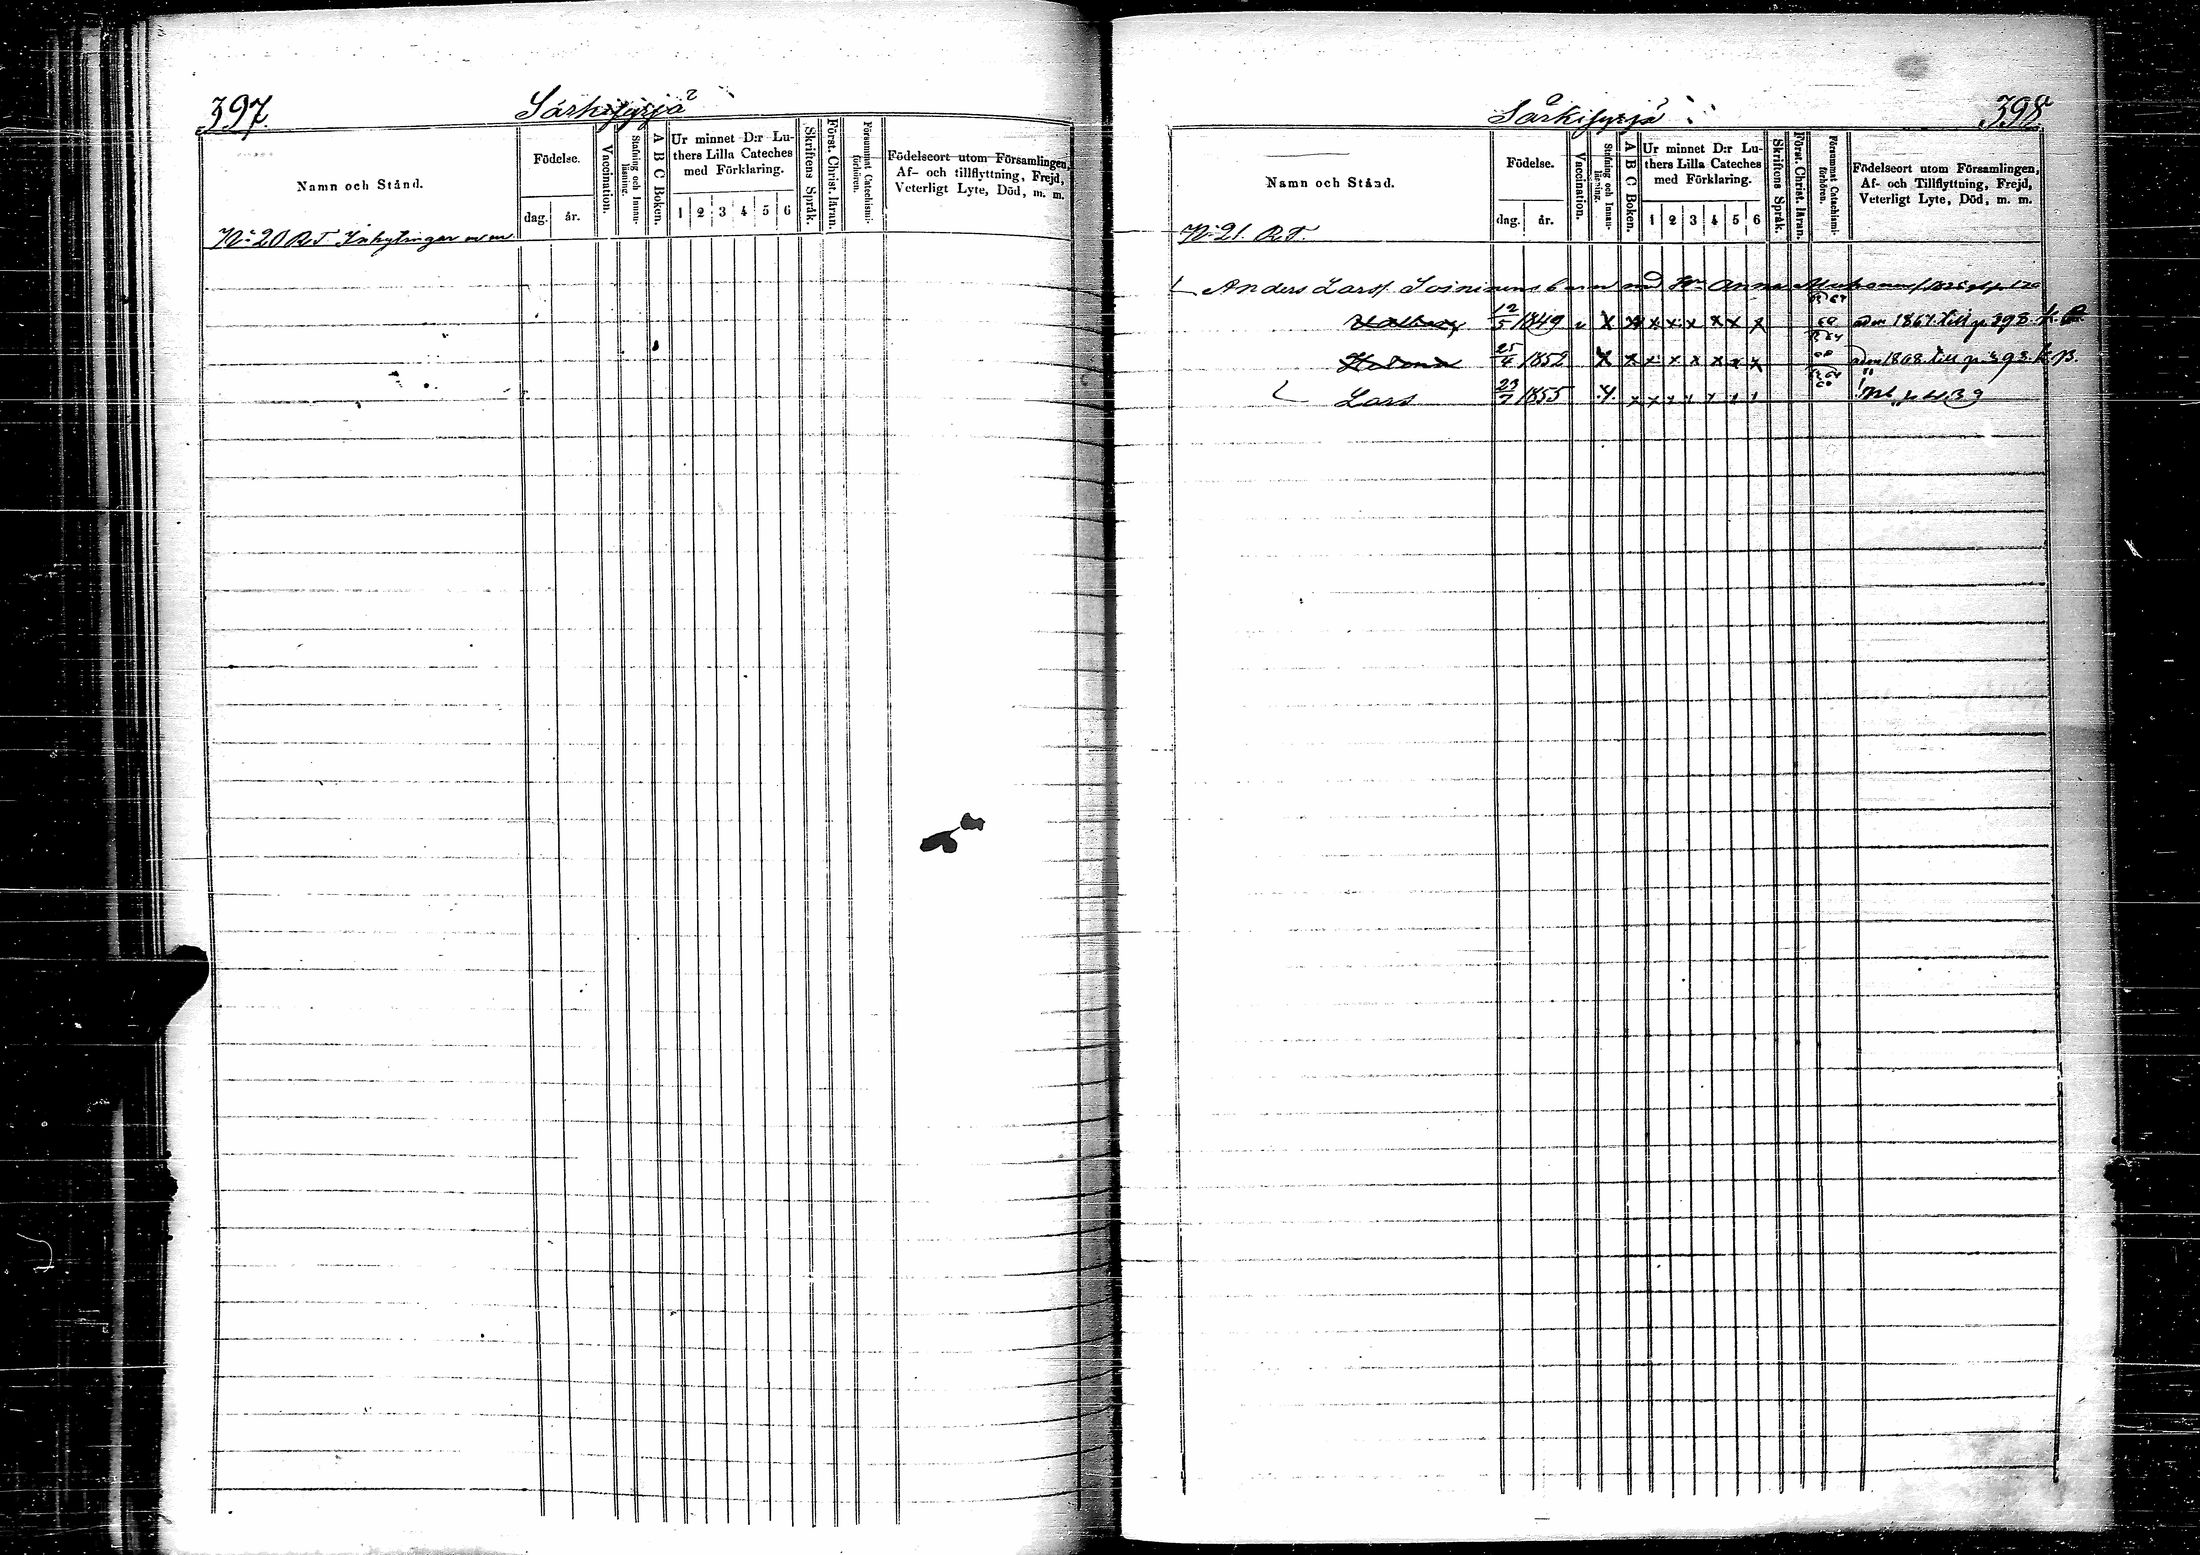 397.
Särkisyrjä
Namn och Stånd.
Födelse.
dag. år.
Vaccination.
Stafning och Innanläsning.
A B C Boken.
Ur minnet D:r Luthers Lilla Cateches med Förklaring.
1 2 3 4 5 6
Skriftens Språk.
Först. Christ. läran.
Försummat Catechismiförhören.
Födelseort utom Församlingen,
Af- och tillflyttning, Frejd,
Veterligt Lyte, Död, m. m.
N:o 20 R.T. Inhysingar m m
Särkisyrjä
398
Namn och Stånd.
Födelse.
dag. år.
Vaccination.
Stafning och Innanläsning.
A B C Boken.
Ur minnet D:r Luthers Lilla Cateches med Förklaring.
1 2 3 4 5 6
Skriftens Språk.
Först. Christ. läran.
Försummat Catechismiförhören.
Födelseort utom Församlingen,
Af- och Tillflyttning, Frejd,
Veterligt Lyte, Död, m. m.
N:o 21. R.T.
Anders Larss. Soininens barn med Anna
12/5 1849 x x x x x x x x adm 1867 till p 398
25/4 1852 x x x x x x x x adm 1868 till p 393
Lars 23/7 1855 x x x x x x x x